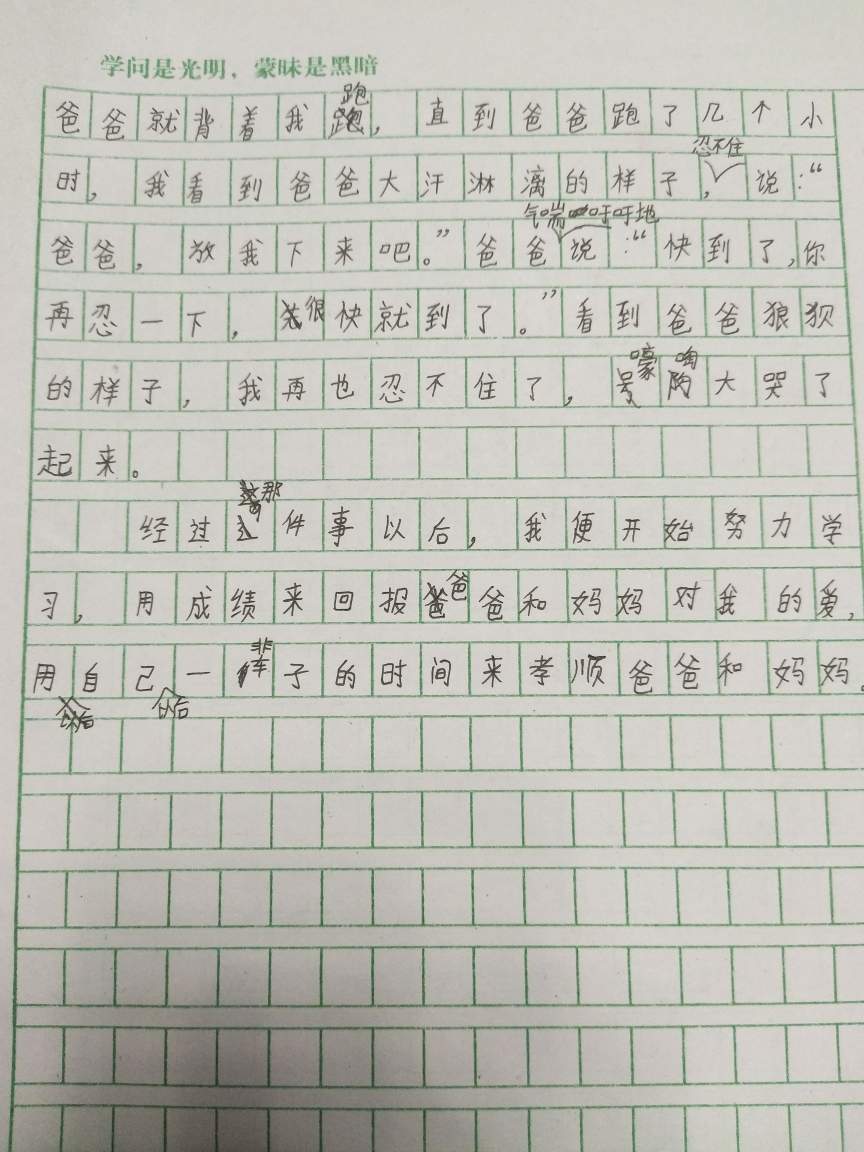 学问是光明，蒙昧是黑暗
爸爸就背着我跑，直到爸爸跑了几个小
时，我看到爸爸大汗淋漓的样子，忍不住说：“
爸爸，放我下来吧。”爸爸气喘吁吁地说：“快到了，你
再忍一下，很快就到了。”看到爸爸狼狈
的样子，我再也忍不住了，嚎啕大哭了
起来。
经过那件事以后，我便开始努力学
习，用成绩来回报爸爸和妈妈对我的爱，
用自己以后一辈子的时间来孝顺爸爸和妈妈。